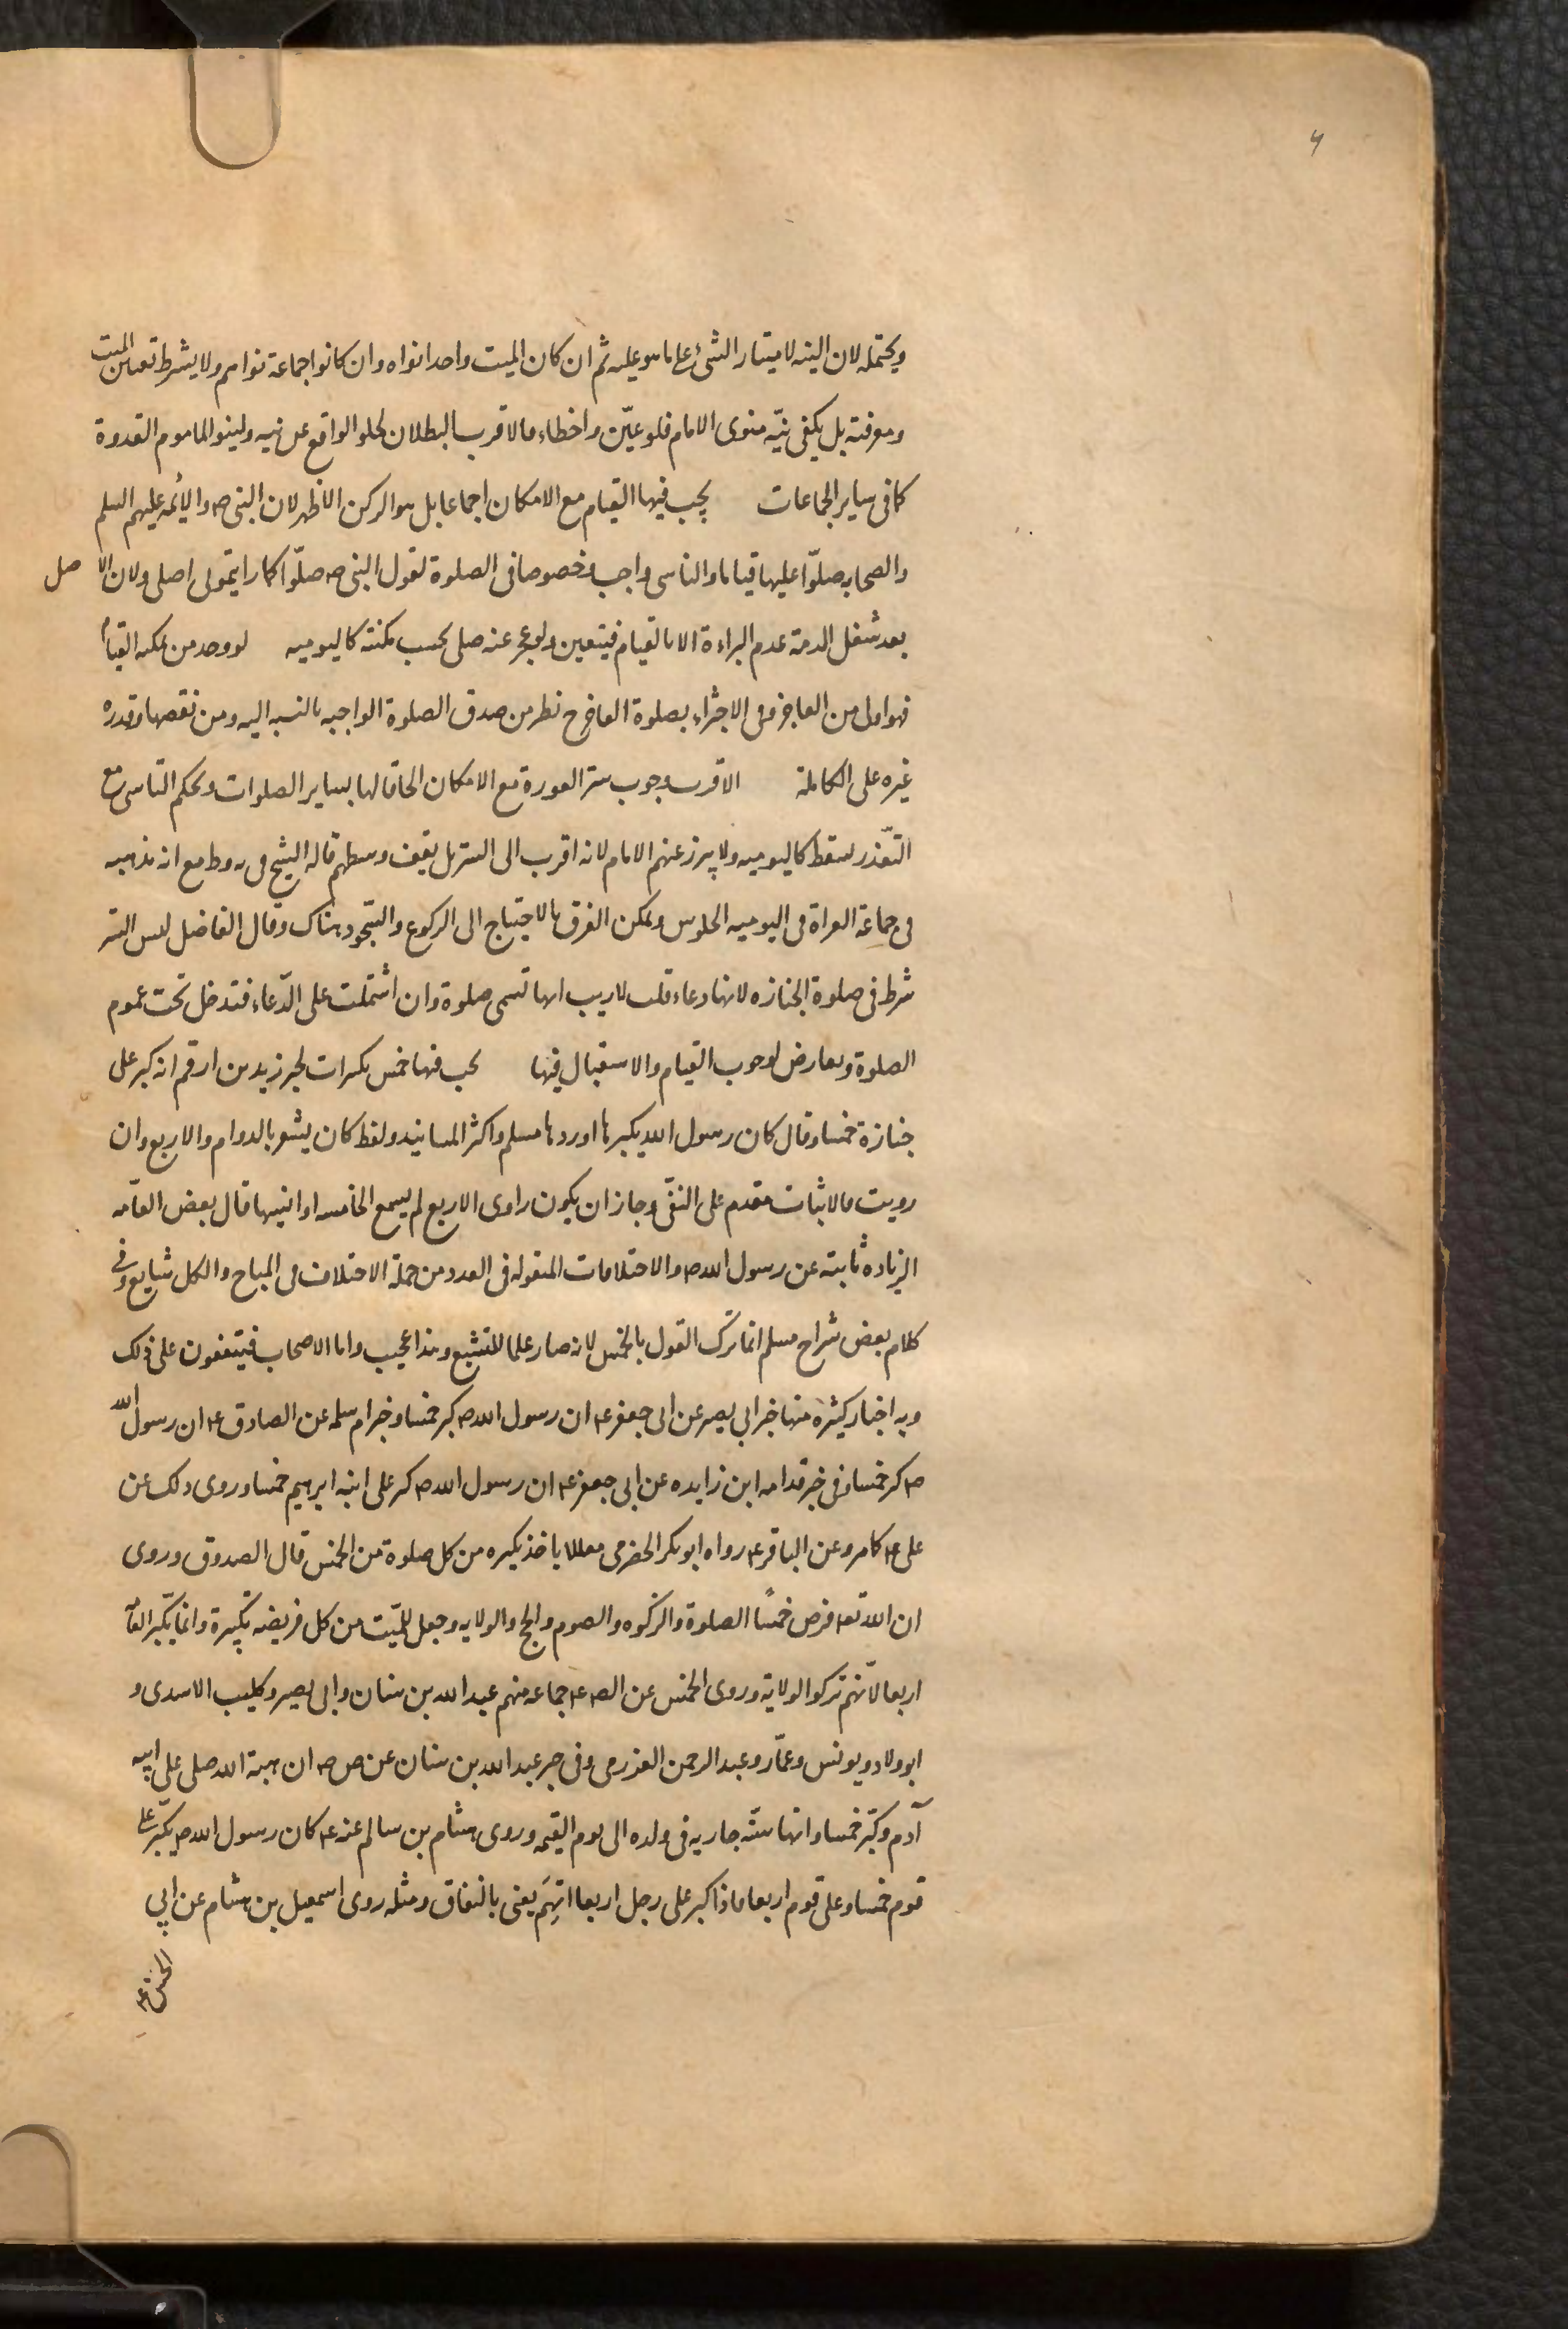 ويحتمله لان النيه لامتياز الشئ على ما هو عليه ثم ان كان الميت واحدا نواه وان كانوا جماعة نواهم ولا يشترط تعيين الميت
ومعرفته بل يكفى نيّه منوى الامام فلو عيّن واخطاء فالاقرب البطلان لخلو الواقع عن نيه ولينو الماموم القدوة
كما فى ساير الجماعات يجب فيها القيام مع الامكان اجماعا بل هو الركن الاظهر لان النبى ص والأئمه عليهم السلم
والصحابه صلّوا عليها قياما والتاسى واجب وخصوصا فى الصلوة لقول النبى ص صلّوا كما رايتمونى اصلى ولان الاصل
بعد شغل الذمة عدم البراءة الا بالقيام فيتعين ولو عجز عنه صلى بحسب مكنته كاليوميه لو وجد من يمكنه القيام
فهو اولى من العاجز وفى الاجتزاء بصلوة العاجز ح نظر من صدق الصلوة الواجبه بالنسبه اليه ومن نقصها وقدره
غيره على الكاملة الاقرب وجوب ستر العورة مع الامكان الحاقا لها بساير الصلوات وبحكم التاسى ومع
التعّذر سقط كاليوميه ولا يبرز عنهم الامام لانه اقرب الى الستر بل يقف وسطهم قاله الشيخ فى يه وط مع انه مذهبه
فى جماعة العراة فى اليوميه الجلوس ويمكن الفرق بالاحتياج الى الركوع والسّجود هناك وقال الفاضل ليس الستر
شرط فى صلوة الجنازه لانها دعاء قلت لا ريب انها تسمى صلوة وان اشتملت على الدّعاء فتدخل تحت عموم
الصلوة ويعارض بوجوب القيام والاستقبال فيها يجب فيها خمس تكبيرات لخبر زيد بن ارقم انه كبر على
جنازة خمسا وقال كان رسول الله يكبرها اوردها مسلم واكثر المسانيد ولفظ كان يشعر بالدوام والاربع وان
رويت فالاثبات مقدم على النفى وجاز ان يكون راوى الاربع لم يسمع الخامسه او انسيها قال بعض العامّه
الزياده ثابته عن رسول الله ص والاختلافات المنقوله فى العدد من جملة الاختلاف فى المباح والكل شايع وفى
كلام بعض شراح مسلم انما ترك القول بالخمس لانه صار علما للتشيع وهذا عجيب واما الاصحاب فيتفقون على ذلك
وبه اخبار كثيره منها خبر ابى بصير عن ابى جعفر ع ان رسول الله ص كبر خمسا وخبر ام سلمه عن الصادق ع ان رسول الله
ص كبر خمسا وفى خبر قدامه ابن زايده عن ابى جعفر ع ان رسول الله ص كبر على ابنه ابرهيم خمسا وروى ذلك عن
على ع كما مر وعن الباقر ع رواه ابو بكر الحضرمى معللا باخذ تكبيره من كل صلوة من الخمس قال الصدوق وروى
ان الله تعه فرض خمسًا الصلوة والزكوه والصوم والحج والولايه وجعل للميّت من كل فريضه تكبيرة وانما يكّبر العامّة
اربعا لانّهم تركوا الولاية وروى الخمس عن الص ع جماعه منهم عبد الله بن سنان وابى بصير وكليب الاسدى و
ابو ولاد ويونس وعمّار وعبد الرحمن العزرمى وفى خبر عبد الله بن سنان عن ص ع ان هبة الله صلى على ابيه
آدم وكبّر خمسا وانها سنّه جاريه فى ولده الى يوم القيمه وروى هشام بن سالم عنه ع كان رسول الله ص يكبّر على
قوم خمسا وعلى قوم اربعا فاذا كبر على رجل اربعا اتهِمَ يعنى بالنفاق ومثله روى اسمعيل بن هشام عن ابى
الحسن ع